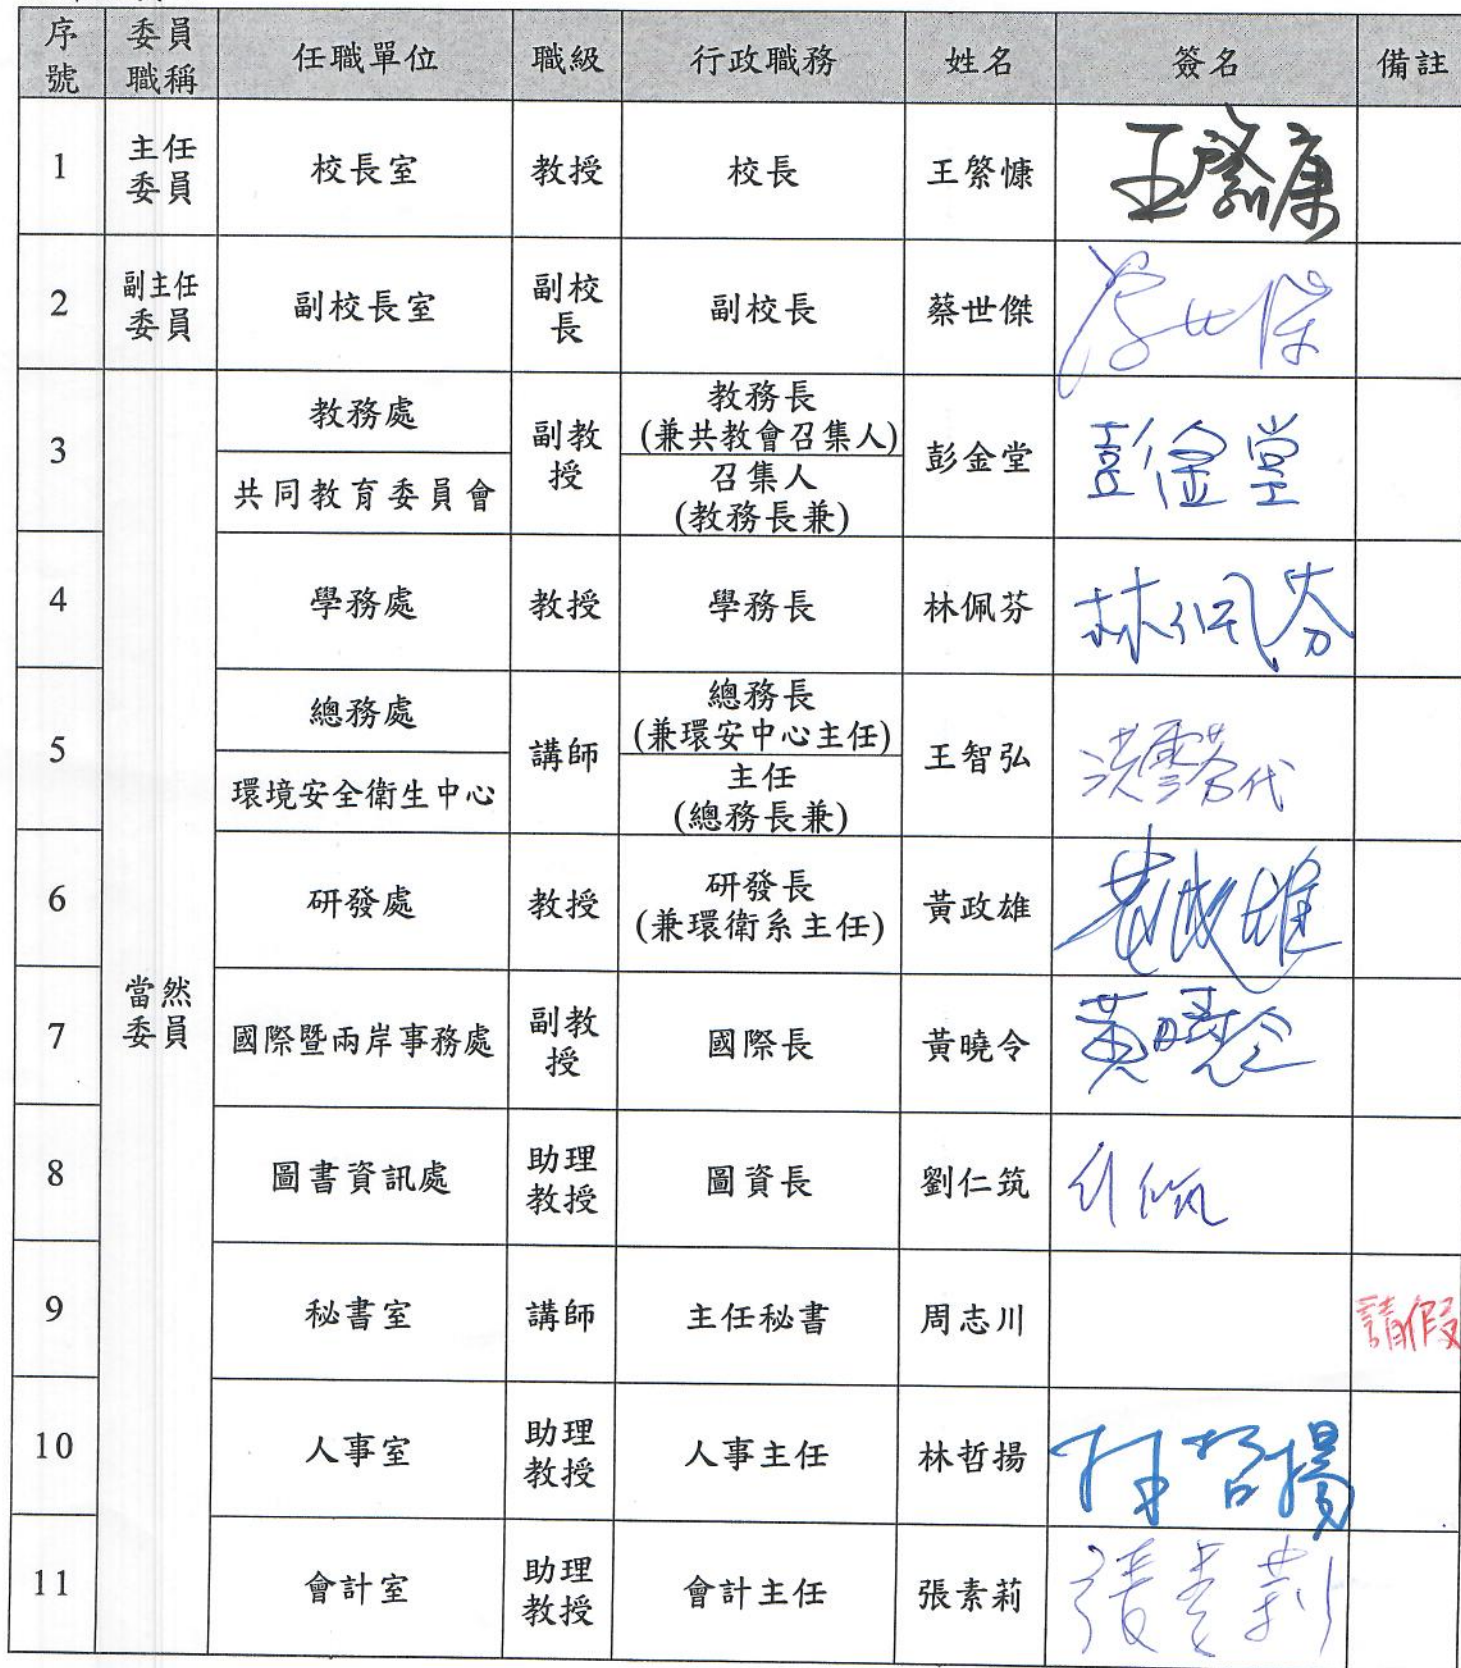 序號 委員職稱 任職單位 職級 行政職務 姓名 簽名 備註
1 主任委員 校長室 教授 校長 王綮慷 王綮慷
2 副主任委員 副校長室 副校長 副校長 蔡世傑 蔡世傑
當然委員
3 教務處 副教授 教務長(兼共教會召集人) 彭金堂 彭金堂
共同教育委員會 召集人(教務長兼)
4 學務處 教授 學務長 林佩芬 林佩芬
5 總務處 講師 總務長(兼環安中心主任) 王智弘 洪雲芬代
環境安全衛生中心 主任(總務長兼)
6 研發處 教授 研發長(兼環衛系主任) 黃政雄 黃政雄
7 國際暨兩岸事務處 副教授 國際長 黃曉令 黃曉令
8 圖書資訊處 助理教授 圖資長 劉仁筑
9 秘書室 講師 主任秘書 周志川 請假
10 人事室 助理教授 人事主任 林哲揚 林哲揚
11 會計室 助理教授 會計主任 張素莉 張素莉